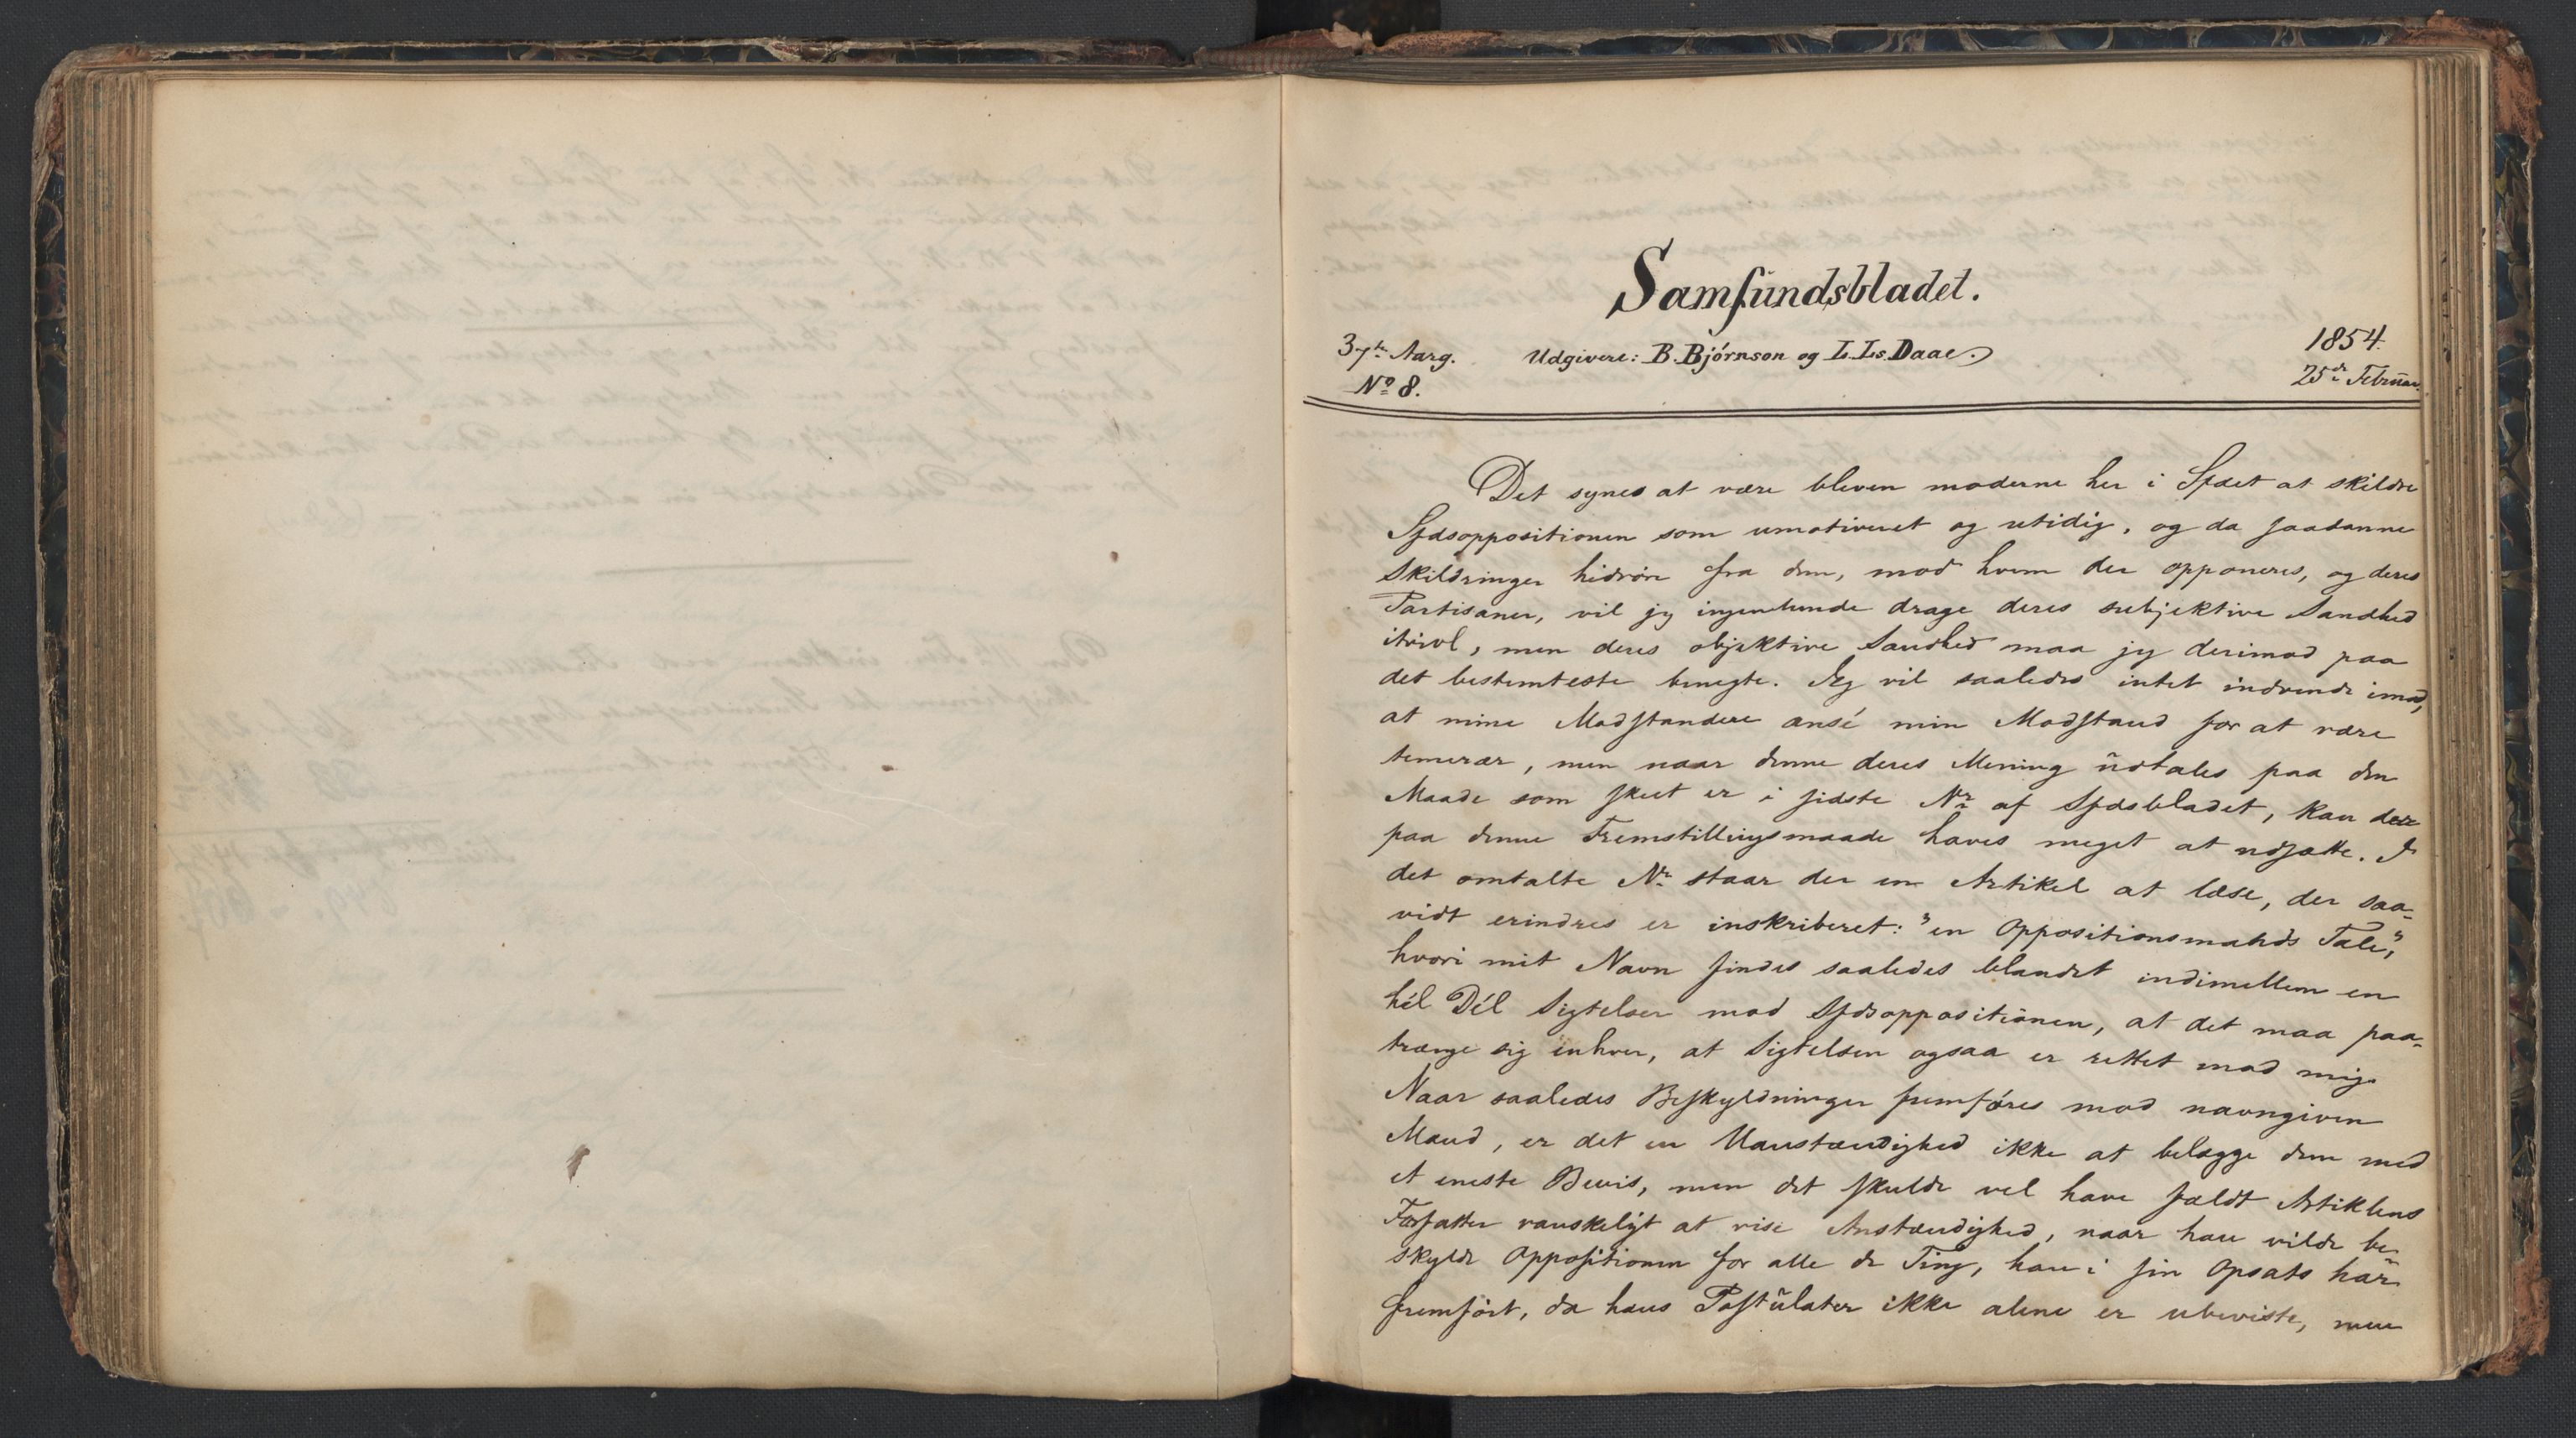 Samfundsbladet.
37te Aarg. Udgivere: B. Björnson og L. Ls. Daae. 1854
No 8. 25de Februar.
Det synes at være bleven moderne her i Sfdet at skildre
Sfdsoppositionen som umotiveret og utidig, og da saadanne
Skildringer hidröre fra dem, mod hvem der opponeres, og deres
Partisaner, vil jeg ingenlunde drage deres subjektive Sandhed
itvivl, men deres objektive Sandhed maa jeg derimod paa
det bestemteste benegte. Jeg vil saaledes intet indvende imod,
at mine Modstandere ansé min Modstand for at være
temerær, men naar denne deres Mening udtales paa den
Maade som skeet er i sidste Nr af Sfdsbladet, kan der
paa denne Fremstillingsmaade haves meget at udsætte. I
det omtalte Nr staar der en Artikel at læse, der saa-
vidt erindres er inskriberet: "en Oppositionsmands Tale",
hvori mit Navn findes saaledes blandet indimellem en
hél Dél Sigtelser mod Sfdsoppositionen, at det maa paa-
trænge sig enhver, at Sigtelsen ogsaa er rettet mod mig.
Naar saaledes Beskyldninger fremföres mod navngiven
Mand, er det en Uanstændighed ikke at belægge dem med
et eneste Bevis, men det skulde vel have faldt Artiklens
Forfatter vanskeligt at vise Anstændighed, naar han vilde be-
skylde Oppositionen for alle de Ting, han i sin Opsats har
fremfört, da hans Postulater ikke alene er ubeviste, men